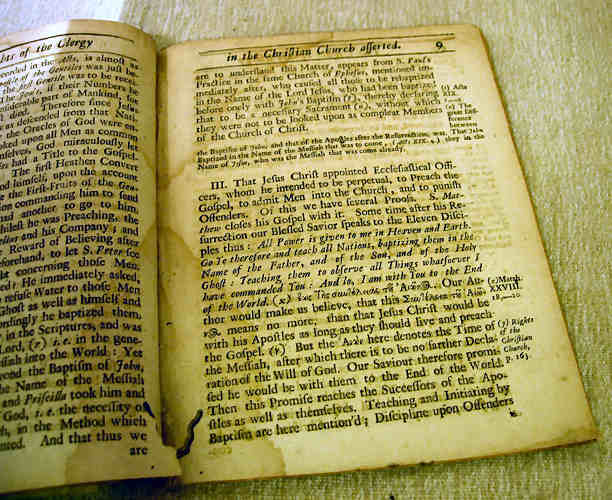 hts of the Clergy
ecorded in the Acts, is almost as
of the Gentiles was just be-
first Gentile was to be recei-
if their Numbers be
nsiderable part of Mankind, for
kind. Therefore since Jesus
as descended from that Nati-
the Oracles of God were en-
oked upon all Men as common
nselves. God miraculously let
had a Title to the Gospel.
The first Heathen Convert
od himself, upon the account
e the First-Fruits of the Gen-
commanding him to send
nd another to go to him.
hilest he was Preaching, the
and his Company; and
Reward of Believing after
forehand, to let S. Peter see
concerning those Men.
ed: He immediately asked
refuse Water to those Men
Ghost as well as himself and
ordingly he baptized them.
in the Scriptures, and was
Lord, i. e. in the gene-
siah into the World: Yet
yond the Baptism of John,
the Name of the Messiah
and Priscilla took him and
God, i. e. the necessity of
in the Method which
nted. And that thus we
are
in the Christian Church asserted. 9
are to understand this Matter, appears from S. Paul's
Practice in the same Church of Ephesus, mentioned im-
mediately after, who caused all those to be rebaptized
in the Name of the Lord Jesus, who had been baptiz'd
before only with John's Baptism (t), thereby declaring
that to be a necessary Sacrament (u), without which
they were not to be looked upon as compleat Members
of the Church of Christ.
(t) Acts
XIX.
(u) The
great Dif-
ference
between
the Baptism of John, and that of the Apostles after the Resurrection, was, That John
Baptized in the Name of the Messiah that was to come, (Acts XIX. 4.) they in the
Name of Jesus, who was the Messiah that was come already.
III. That Jesus Christ appointed Ecclesiastical Offi-
cers, whom he intended to be perpetual, to Preach the
Gospel, to admit Men into the Church, and to punish
Offenders. Of this we have several Proofs. S. Mat-
thew closes his Gospel with it. Some time after his Re-
surrection our Blessed Saviour speaks to the Eleven Disci-
ples thus: All Power is given to me in Heaven and Earth.
Go Ye therefore and teach all Nations, baptizing them in the
Name of the Father, and of the Son, and of the Holy
Ghost: Teaching them to observe all Things whatsoever I
have commanded You: And lo, I am with You to the End
of the World. (x) ἕως τῆς συντελείας τοῦ Αἰῶνος. Our Au-
thor would make us believe, that this Συντέλεια τοῦ Αἰῶ-
νος means no more, than that Jesus Christ would be
with his Apostles as long as they should live and preach
the Gospel. (y) But the Αἰὼν here denotes the Time of
the Messiah, after which there is to be no farther Decla-
ration of the Will of God. Our Saviour therefore promi-
sed he would be with them to the End of the World.
Then this Promise reaches the Successors of the Apo-
stles as well as themselves. Teaching and Initiating by
Baptism are here mention'd; Discipline upon Offenders
is
(x) Matth.
XXVIII.
18,—20.
(y) Rights
of the
Christian
Church,
p. 163.